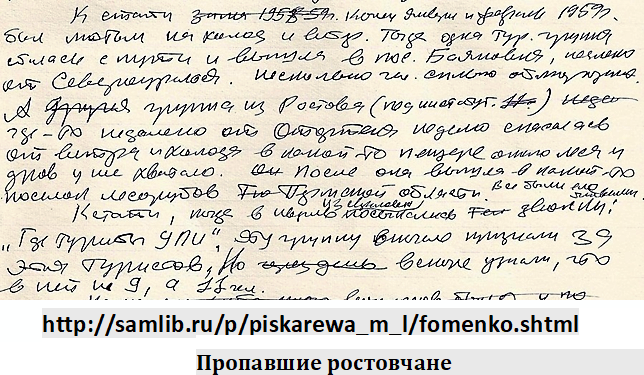 Кстати зима 1958-59г. Конец января и февраль 1959г.
был лютым на холод и ветер. Тогда одна тур. группа
сбилась с пути и вышла в пос. Баяновка, недалеко
от Североуральска. Несколько чел. сильно обморожены.
А другая группа из Ростова (под институт.)
где-то недалеко от Отортена неделю спасалась
от ветра и холода в какой-то пещере около леса и
дров им не хватало. После она вышла в какой-то
поселок лесорубов Пермской области. Все были
Кстати, тогда в посыпались звонки:
"Где туристы УПИ". Эту группу вначале признали за
этих туристов, но вскоре узнали, что
в ней не 9, а 11 чел.
http://samlib.ru/p/piskarewa_m_l/fomenko.shtml
Пропавшие ростовчане